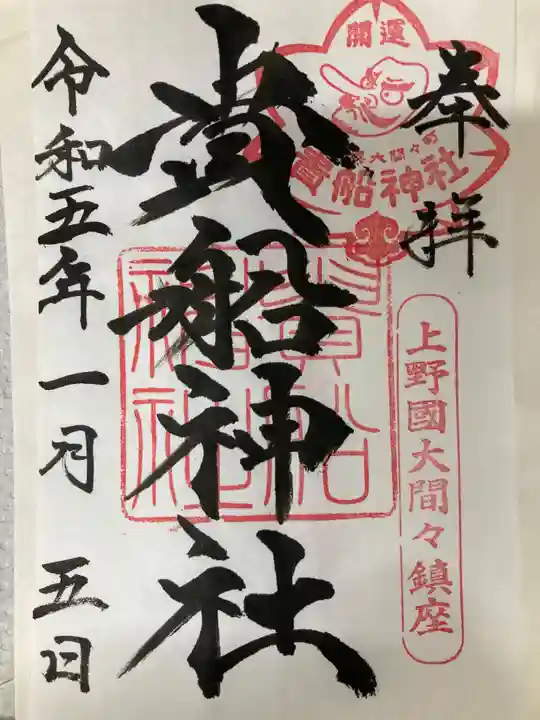 奉拝
開運
大間々町
貴船神社
上野國大間々鎮座
貴船神社
貴船神社
令和五年一月五日